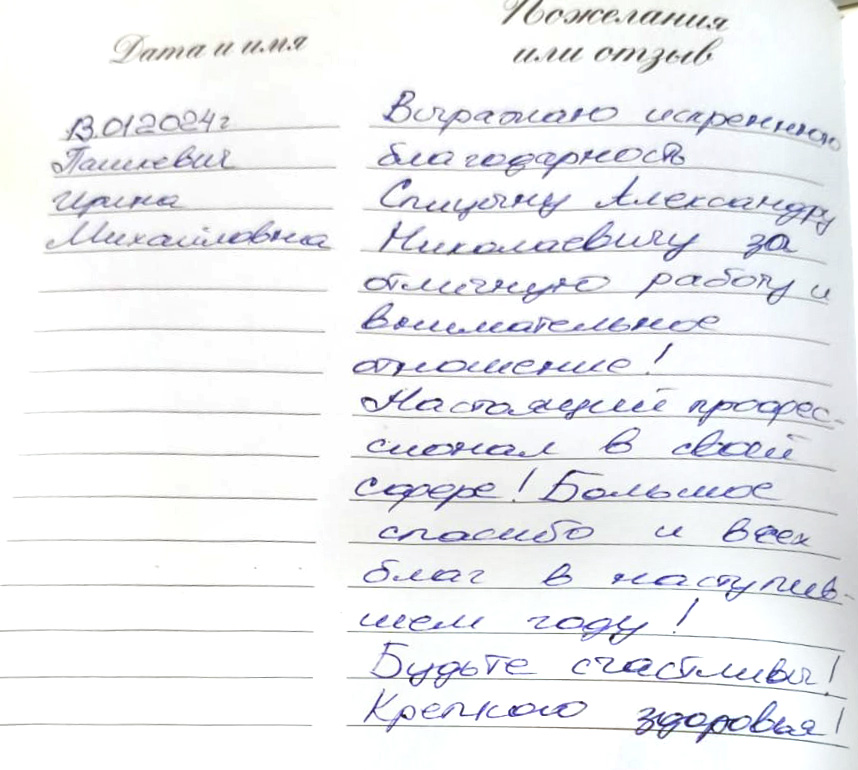 Дата и имя
Пожелания
или отзыв
13.01.2024г
Пашкевич
Ирина
Михайловна
Выражаю искреннюю
благодарность
Спицыну Александру
Николаевичу за
отличную работу и
внимательное
отношение!
Настоящий профес-
сионал в своей
сфере! Большое
спасибо и всех
благ в наступив-
шем году!
Будьте счастливы!
Крепкого здоровья!